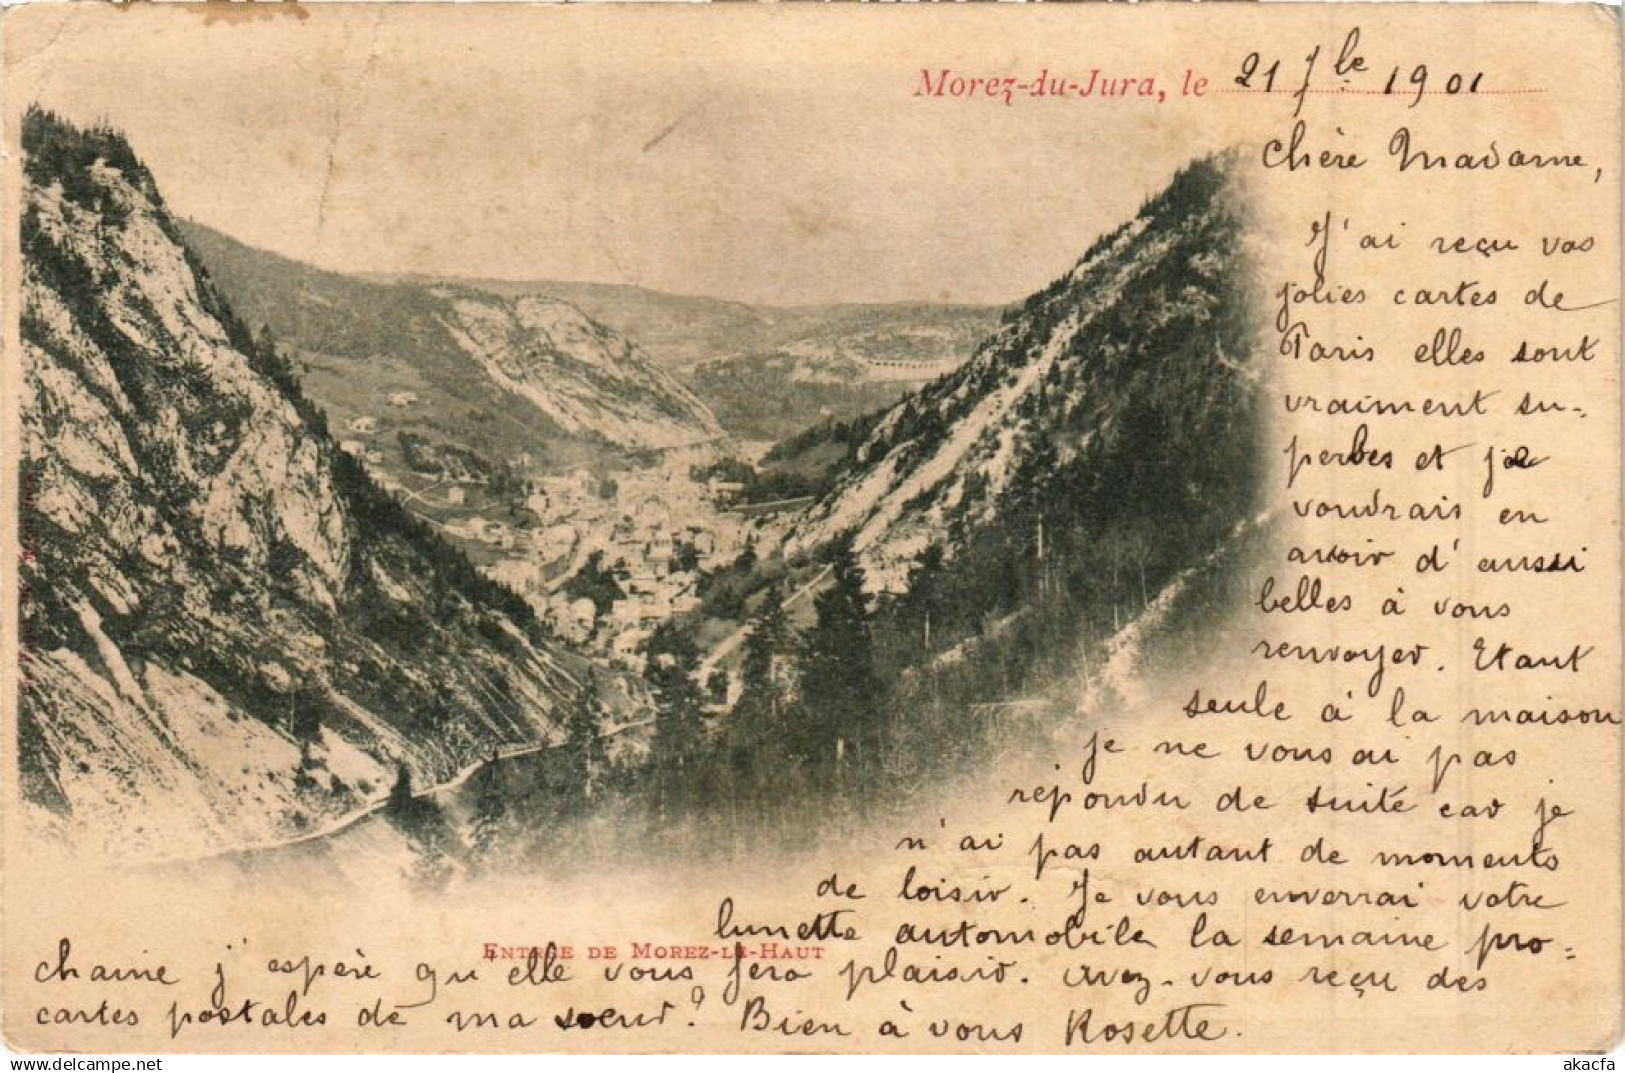 Morez-du-Jura, le 21 7bre 1901
Chère Madame,
J'ai reçu vos
jolies cartes de
Paris elles sont
vraiment su-
perbes et je
voudrais en
avoir d'aussi
belles à vous
renvoyer. Etant
seule à la maison
je ne vous ai pas
répondu de suite car je
n'ai pas autant de moments
de loisir. Je vous enverrai votre
lunette automobile la semaine pro-
ENTRÉE DE MOREZ-LE-HAUT
chaine j'espère qu'elle vous fera plaisir. Avez-vous reçu des
cartes postales de ma sœur? Bien à vous Rosette.
akacfa
delcampe.net